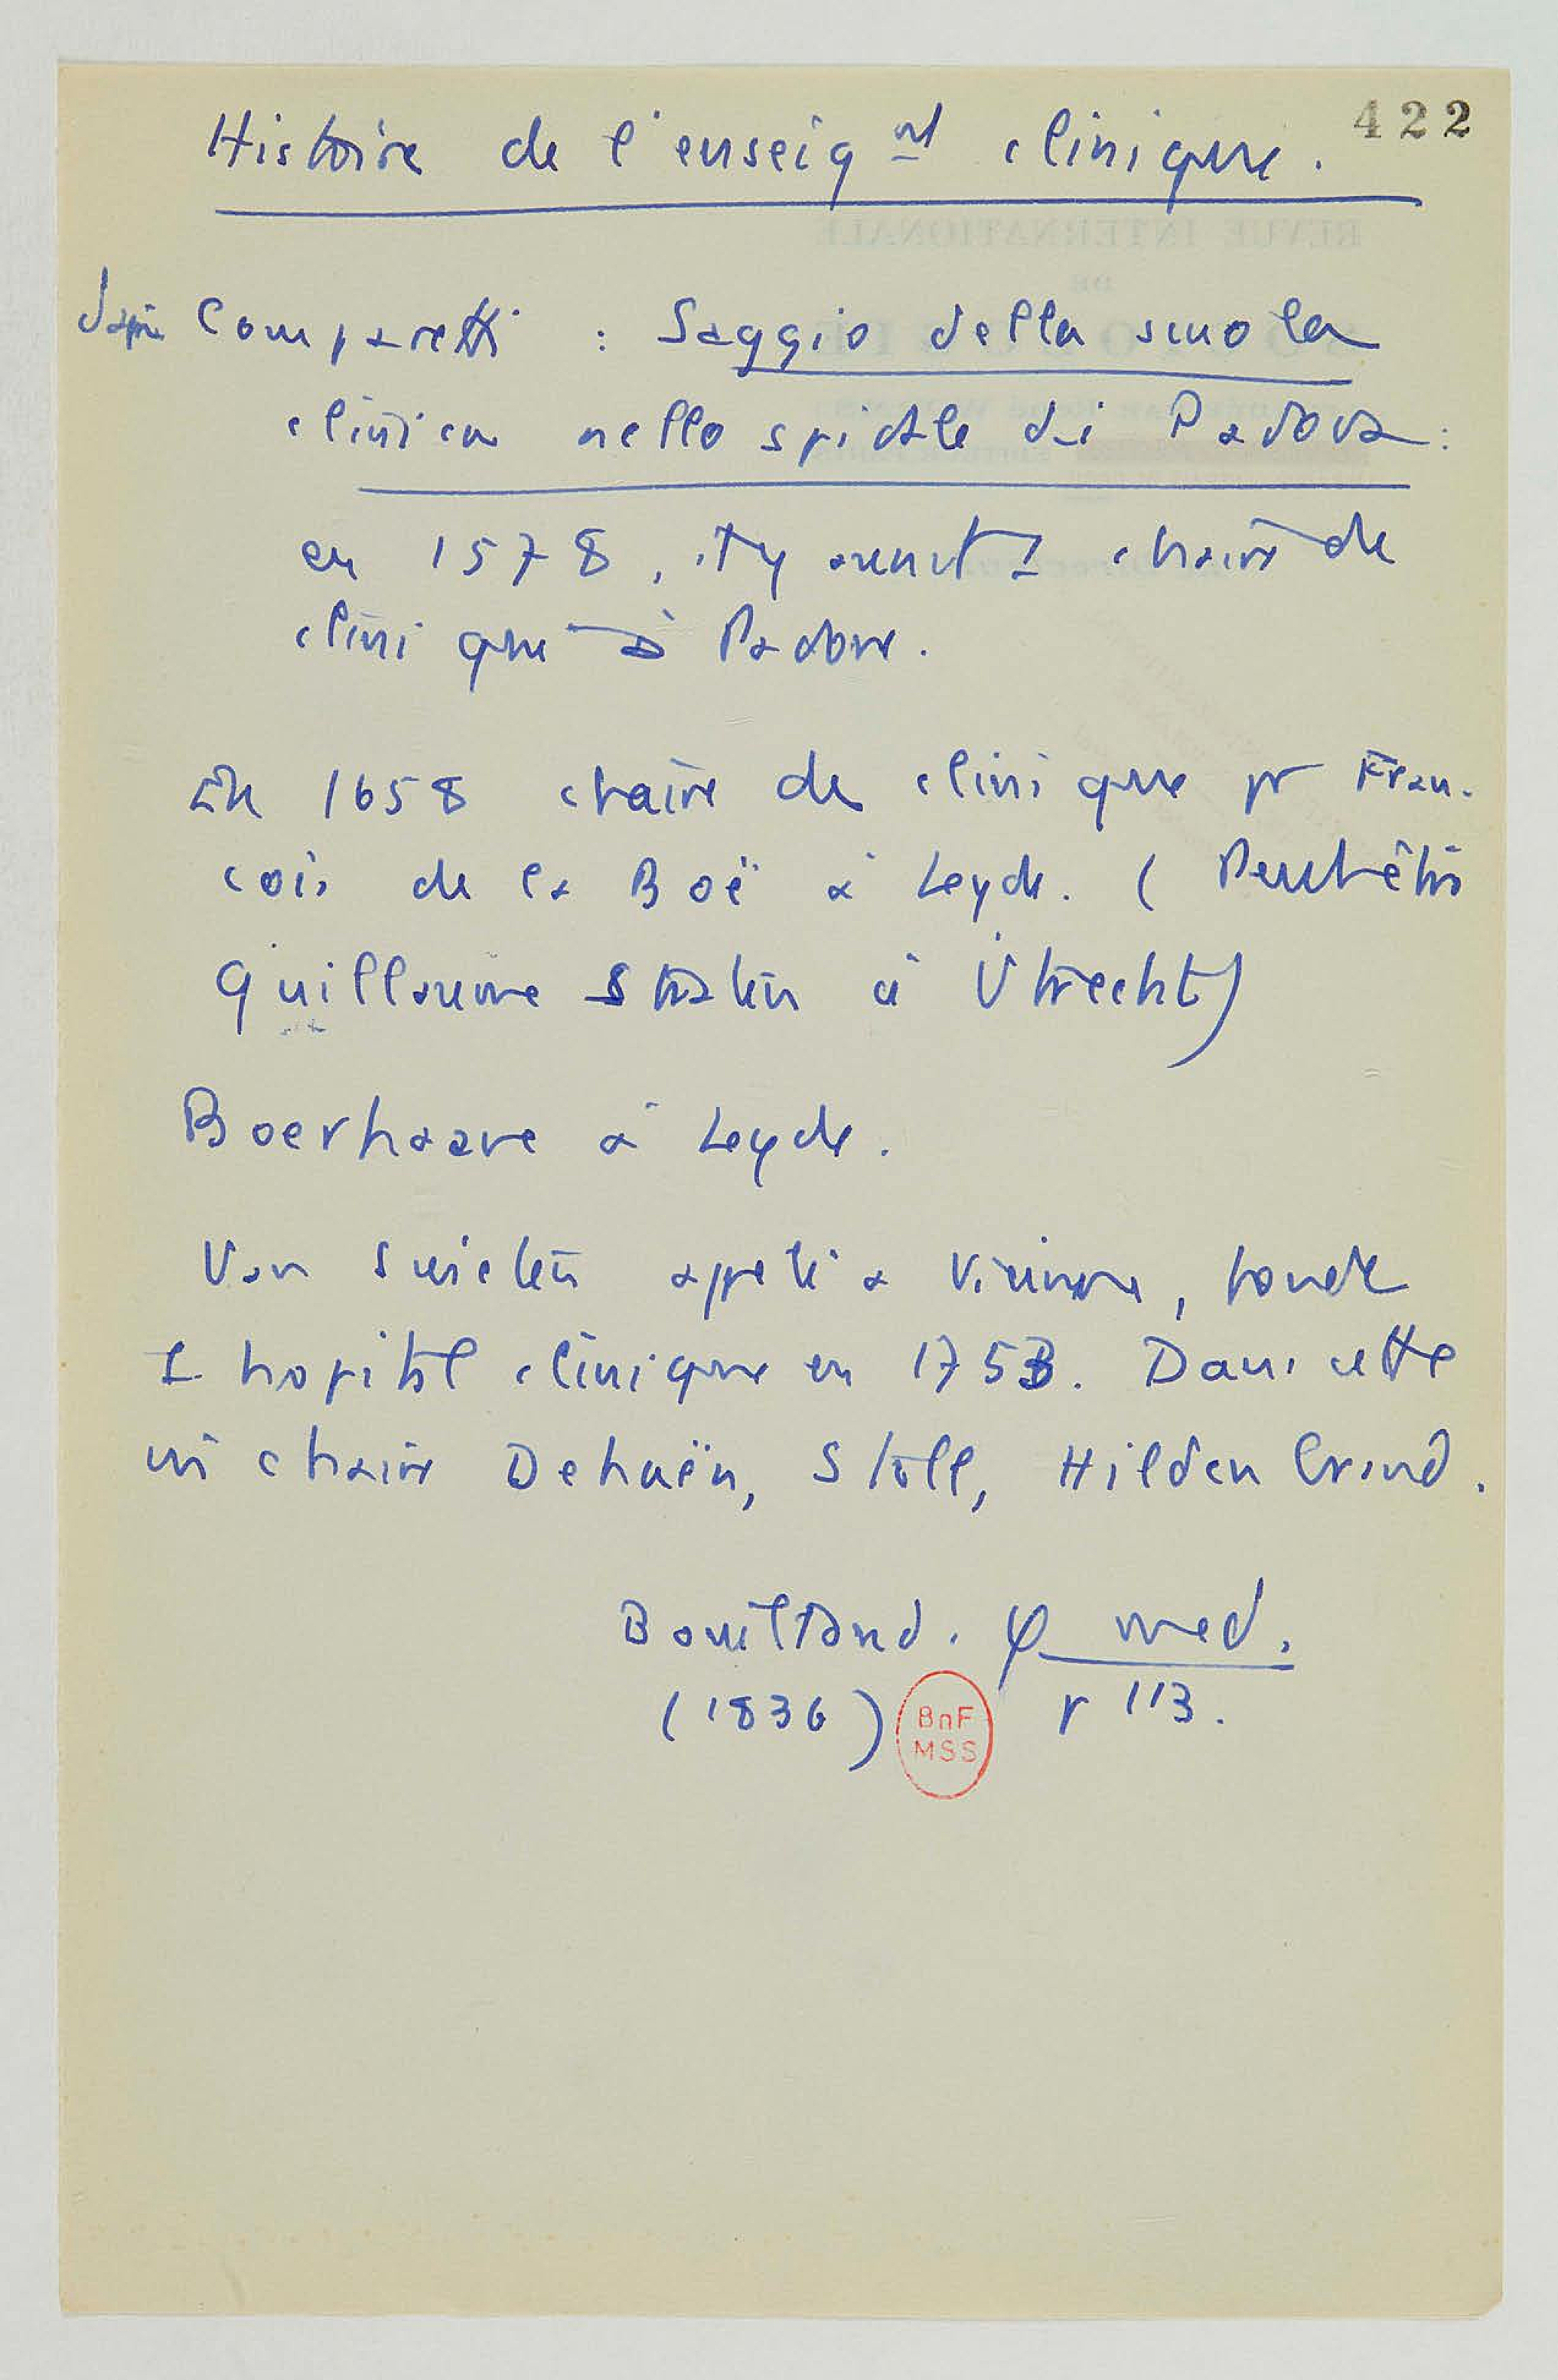 422
Histoire de l'enseignt clinique.
d'après Comparetti : Saggio della scuola
clinica nello spidale di Padova :
en 1578, il y avait 1 chaire de
clinique à Padoue.
En 1658 chaire de clinique pr Fran-
cois de la Boë à Leyde. (Peut-être
Guillaume Straten à Utrecht)
Boerhaave à Leyde.
Van Swieten appelé à Vienne, fonde
1 hopital clinique en 1753. Dans cette
chaire Dehaën, Stoll, Hildenbrand.
Bouillaud. φ med.
(1836) p 113.
BnF
MSS
REVUE INTERNATIONALE
DE